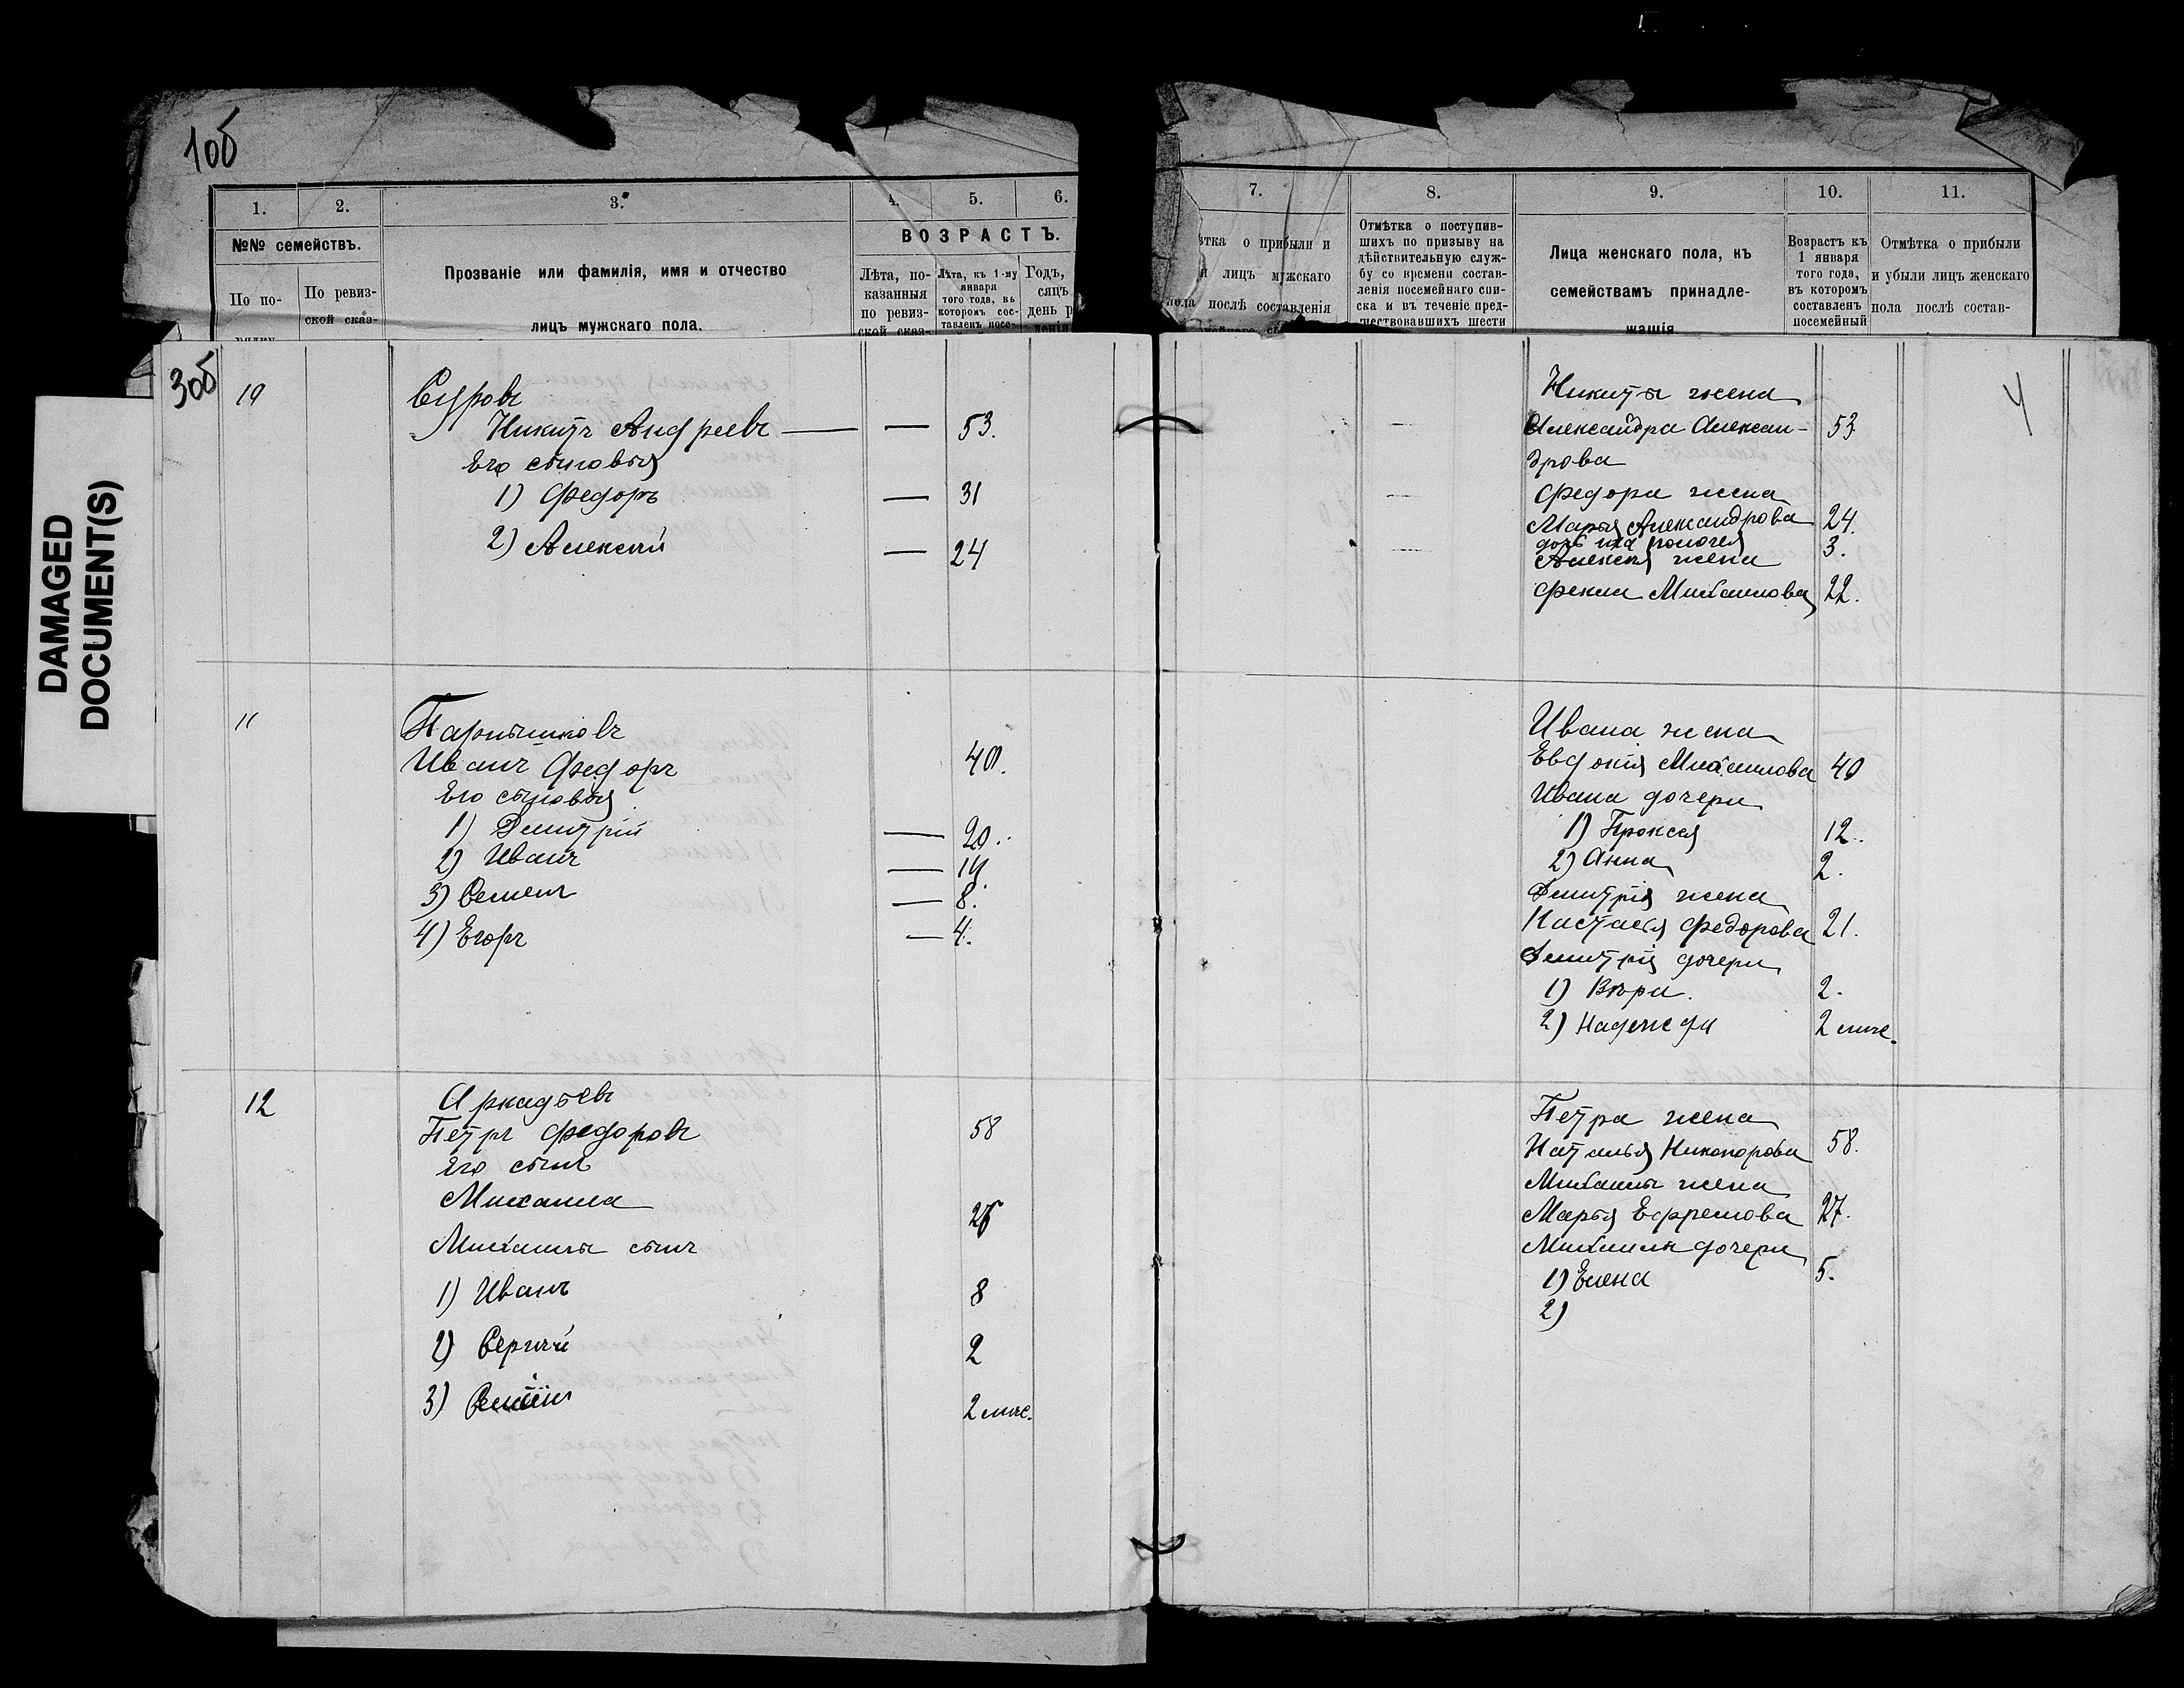 1об
1. 2. 3. 4. 5. 6.
№№ семействъ.
По по-
рядку
По ревиз-
ской сказ-
Прозваніе или фамилія, имя и отчество
лицъ мужскаго пола.
ВОЗРАСТЪ.
Лѣта, по-
казанныя
по ревиз-
ской сказ-
Лѣта, къ 1-му
января
того года, въ
которомъ сос-
тавленъ посе-
Годъ,
сяцъ
день р
денія
7. 8. 9. 10. 11.
ѣтка о прибыли и
и лицъ мужскаго
пола послѣ составленія
Отмѣтка о поступив-
шихъ по призыву на
дѣйствительную служ-
бу со времени состав-
ленія посемейнаго спи-
ска и въ теченіе пред-
шествовавшихъ шести
Лица женскаго пола, къ
семействамъ принадле-
жащія
Возрастъ къ
1 января
того года,
въ которомъ
составленъ
посемейный
Отмѣтка о прибыли
и убыли лицъ женскаго
пола послѣ состав-
DAMAGED
DOCUMENT(S)
3об
10
Суровъ
Никита Андреевъ — — 53.
Его сыновья
1) Федоръ — 31
2) Алексѣй — 24
4
Никиты жена
Александра Алексан- 53.
дрова
Федора жена
Марья Александрова 24.
дочь ихъ 3.
Алексея жена
Фекла Михаилова 22.
11
Парнышковъ
Иванъ Федоръ 40.
Его сыновья
1) Дмитрій — 20.
2) Иванъ — 14.
3) Семенъ — 8.
4) Егоръ — 4.
Ивана жена
Евдокія Михаилова 40
Ивана дочери
1) Проксея 12.
2) Анна 2.
Дмитрія жена
Настасья Федорова 21.
Дмитрія дочери
1) Вѣра. 2.
2) Надежда 2 мѣс.
12
Аркадьевъ
Петръ Федоровъ 58
Его сынъ
Михаила 26
Михаилы сынъ
1) Иванъ 8
2) Сергѣй 2
3) 2 мѣс.
Петра жена
Наталья Никонорова 58.
Михаилы жена
Марья Ефремова 27.
Михаилы дочери
1) Елена 5.
2)